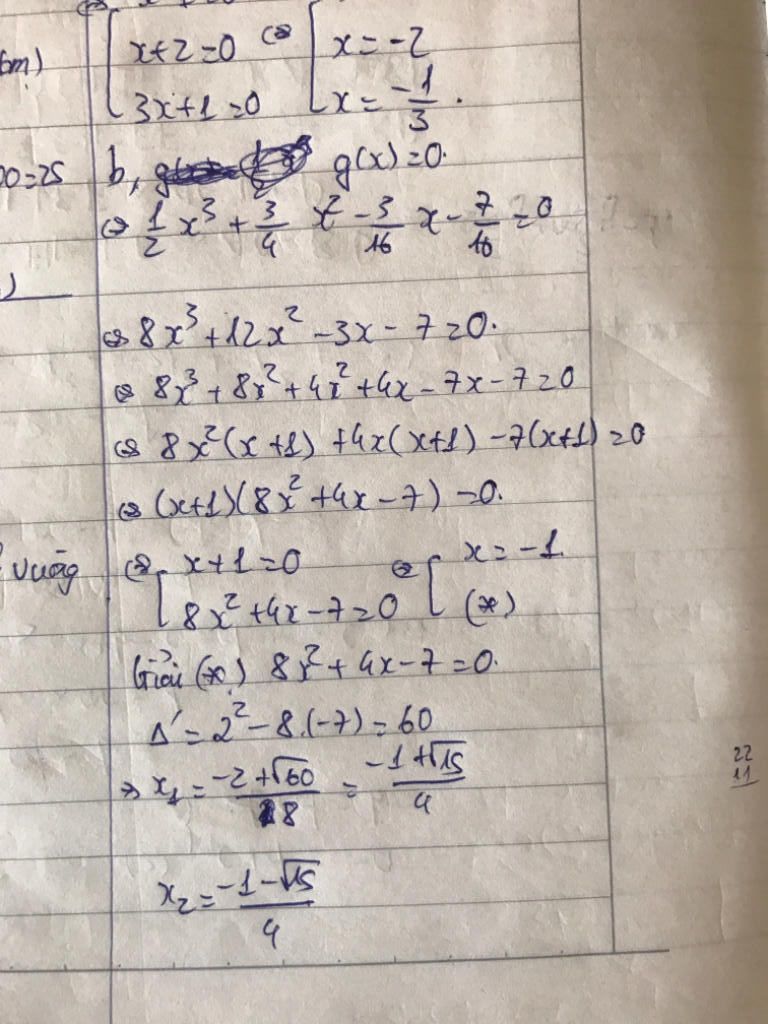 6m)
x+2=0 ⇔ x=-2
3x+1=0 x=-1/3.
00=25
b, g(x)=0.
⇔ 1/2 x³ + 3/4 x² - 3/16 x - 7/16 = 0
)
⇔ 8x³+12x²-3x-7=0.
⇔ 8x³+8x²+4x²+4x-7x-7=0
⇔ 8x²(x+1)+4x(x+1)-7(x+1)=0
⇔ (x+1)(8x²+4x-7)=0.
vuông
⇔ [x+1=0 ⇔ [x=-1
8x²+4x-7=0 (*)
Giải (*) 8x²+4x-7=0.
Δ'=2²-8.(-7)=60
⇒ x₁=(-2+√60)/8 = (-1+√15)/4
x₂=(-1-√15)/4
22
11